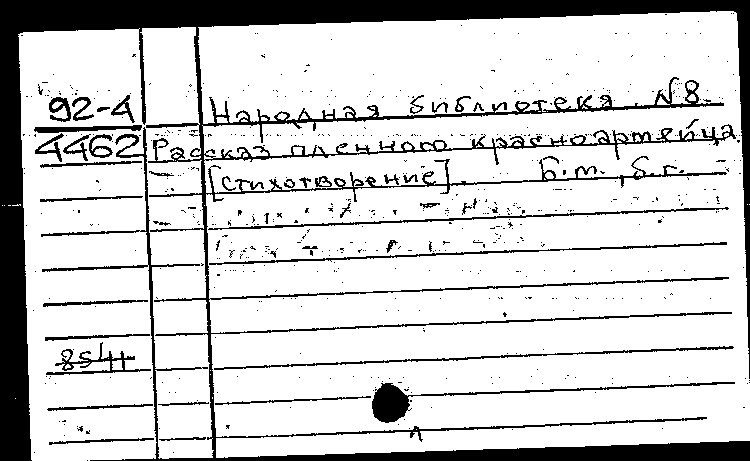 92-4 Народная библиотека. N8.
4462 Рассказ пленного красноармейца
[стихотворение]. Б.м., б.г.
8544